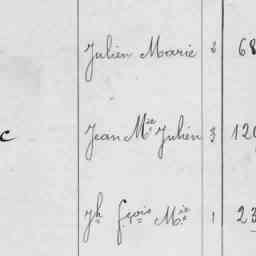 Julien Marie 2 68
c Jean Mie Julien 3 120
Jh fçois Mie 1 23